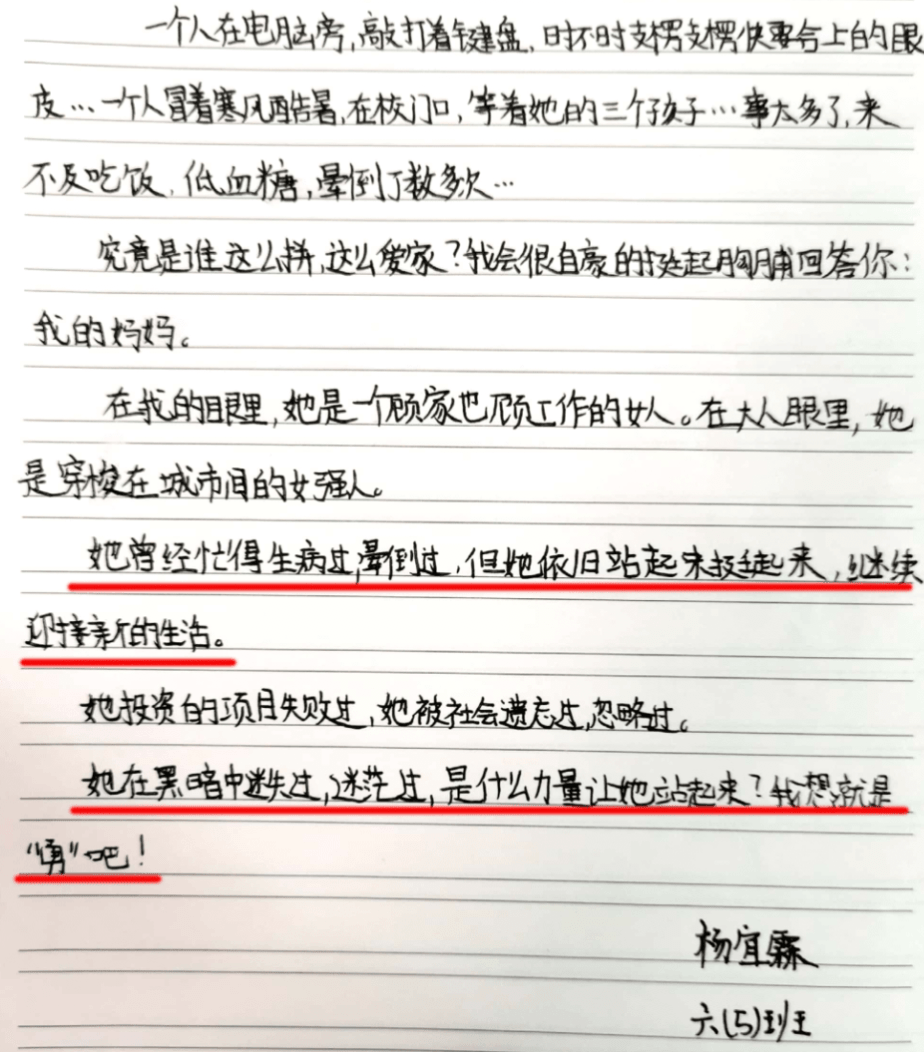 一个人在电脑旁,敲打着键盘,时不时支楞支楞快要合上的眼
皮…一个人冒着寒风酷暑,在校门口,等着她的三个孩子…事太多了,来
不及吃饭,低血糖,晕倒了数多次…
究竟是谁这么拼,这么爱家?我会很自豪的挺起胸脯回答你:
我的妈妈。
在我的眼里,她是一个顾家也顾工作的女人。在大人眼里,她
是穿梭在城市间的女强人。
她曾经忙得生病过,晕倒过,但她依旧站起来挺起来,继续
迎接新的生活。
她投资的项目失败过,她被社会遗忘过,忽略过。
她在黑暗中迷失过,迷茫过,是什么力量让她站起来?我想就是
“勇”吧!
杨宜霖
六(5)班